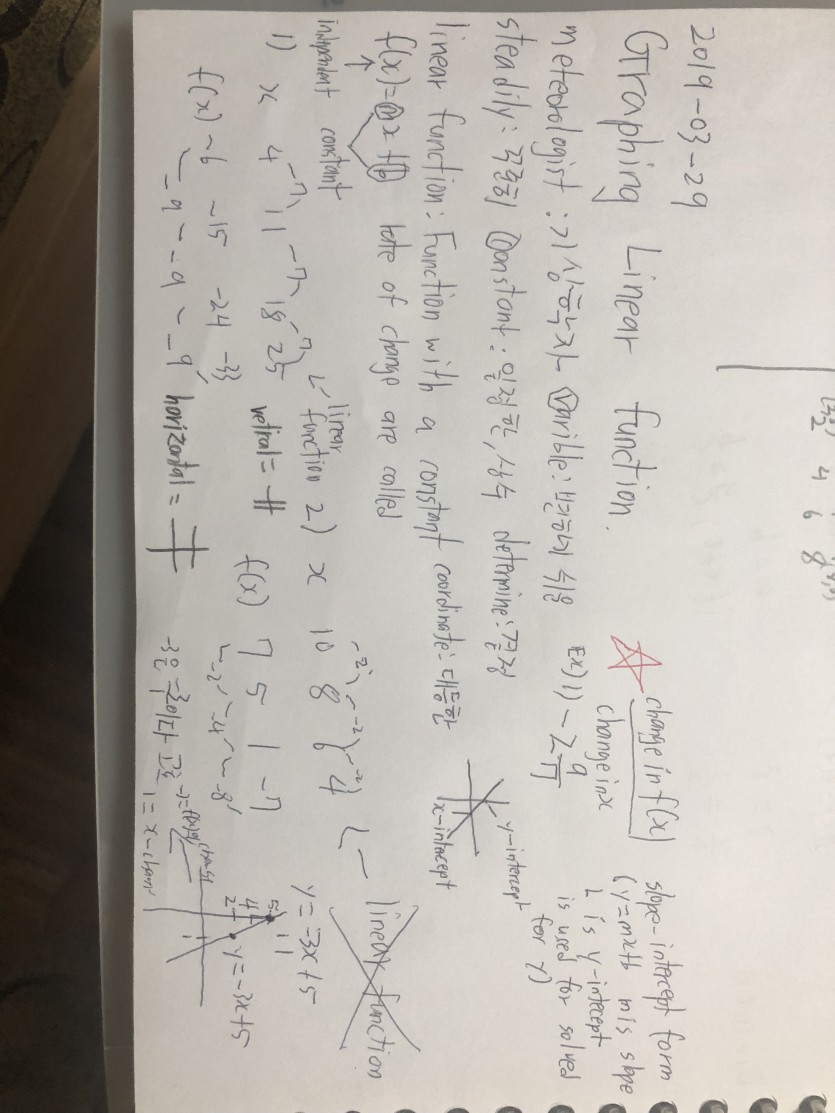 2019-03-29
Graphing Linear function.
meteorologist : 기상학자 Varible: 변하기 쉬움
steadily: 꾸준히 Constant: 일정한, 상수 determine: 결정
linear function: Function with a constant coordinate: 대등한
f(x)=ax+b rate of change are called
independent constant
1) x 4 11 18 25
-7 -7 -7
f(x) -6 -15 -24 -33
-9 -9 -9
linear
function
vetical =
horizontal =
2) x 10 8 6 4
-2 -2 -2
f(x) 7 5 1 -7
-2 -4 -8
linear function
change in f(x)
change in x
Ex) 1) -9
7
slope-intercept form
(y=mx+b m is slope
b is y-intecept
is used for solved
for y)
y-intercept
x-intecept
y=-3x+5
y=-3x+5
5
4
2
1
1 = x-chan
(3,2) 4 6 8